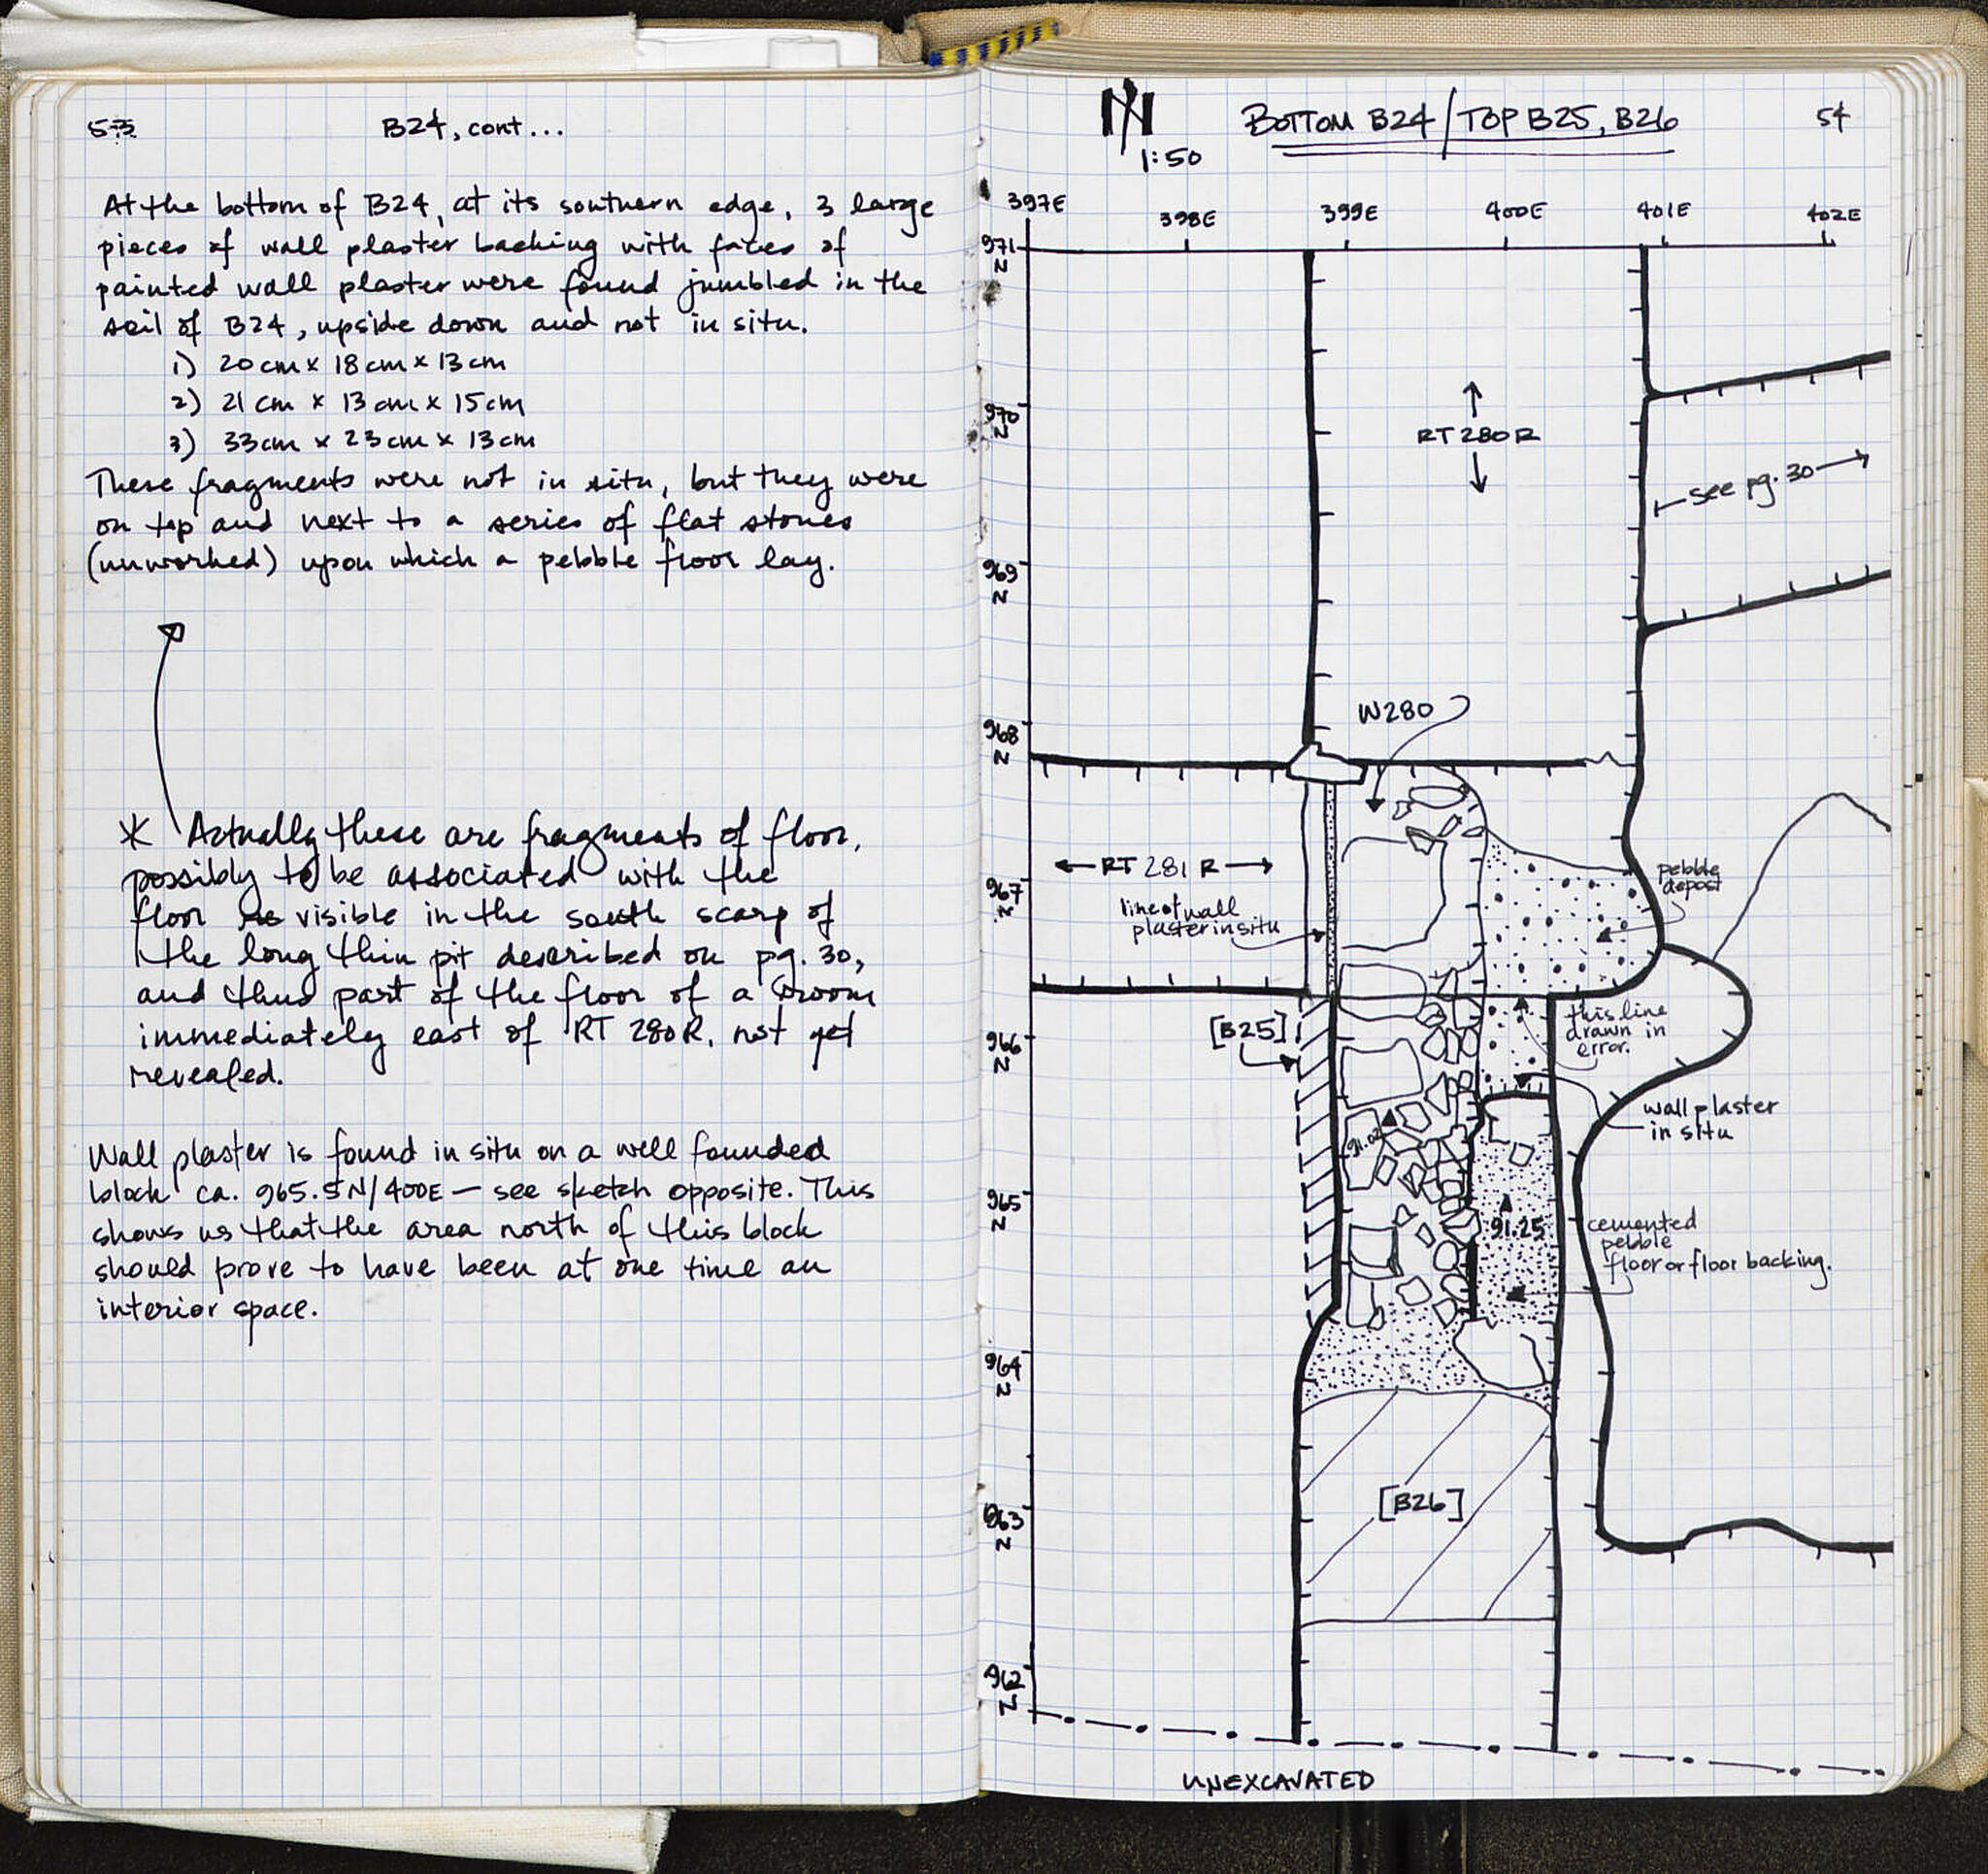 53
B24, cont...
At the bottom of B24, at its southern edge, 3 large
pieces of wall plaster backing with faces of
painted wall plaster were found jumbled in the
soil of B24, upside down and not in situ.
1) 20cm x 18cm x 13cm
2) 21cm x 13cm x 15cm
3) 33cm x 23cm x 13cm
These fragments were not in situ, but they were
on top and next to a series of flat stones
(unworked) upon which a pebble floor lay.
* Actually these are fragments of floor,
possibly to be associated with the
floor visible in the south scarp of
the long thin pit described on pg. 30,
and thus part of the floor of a room
immediately east of RT 280R, not yet
revealed.
Wall plaster is found in situ on a well founded
block ca. 965.5N/400E — see sketch opposite. This
shows us that the area north of this block
should prove to have been at one time an
interior space.
N
1:50
BOTTOM B24/TOP B25, B26
54
397E
398E
399E
400E
401E
402E
971
N
970
N
RT 280R
see pg. 30
969
N
W280
968
N
RT 281 R
967
N
pebble
depost
line of wall
plaster in situ
[B25]
this line
drawn in
error.
966
N
wall plaster
in situ
91.02
965
N
91.25
cemented
pebble
floor or floor backing.
964
N
[B26]
963
N
962
N
UNEXCAVATED